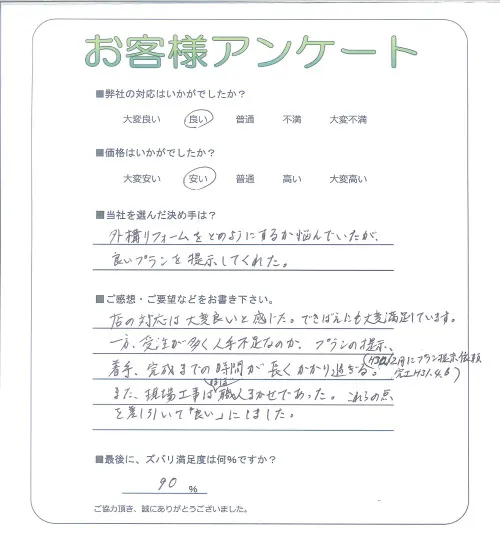 お客様アンケート
■弊社の対応はいかがでしたか？
大変良い 良い 普通 不満 大変不満
■価格はいかがでしたか？
大変安い 安い 普通 高い 大変高い
■当社を選んだ決め手は？
外構リフォームをどのようにするか悩んでいたが、
良いプランを提示してくれた。
■ご感想・ご要望などをお書き下さい。
店の対応は大変良いと感じた。できばえにも大変満足しています。
一方、受注が多く人手不足なのか、プランの提示、
着手、完成までの時間が長くかかり過ぎる。
(H30.12月にプラン提示依頼
完工H31.4.6)
また、現場工事はほぼ職人まかせであった。これらの点
を差し引いて「良い」にしました。
■最後に、ズバリ満足度は何%ですか？
90 %
ご協力頂き、誠にありがとうございました。